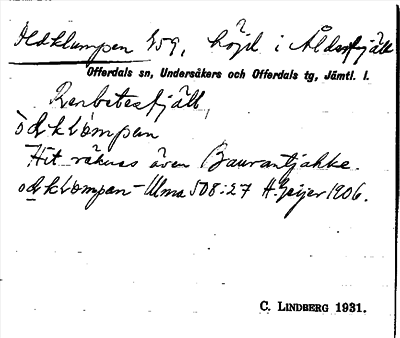 Öldklumpen 859, höjd i Åldersfjäll
Offerdals sn, Undersåkers och Offerdals tg, Jämtl. l.
Renbetesfjäll,
ödklómpen
Hit räknas även Baurantjakke.
ödklompen - Ulma 508:27 H. Geijer 1906.
C. LINDBERG 1931.